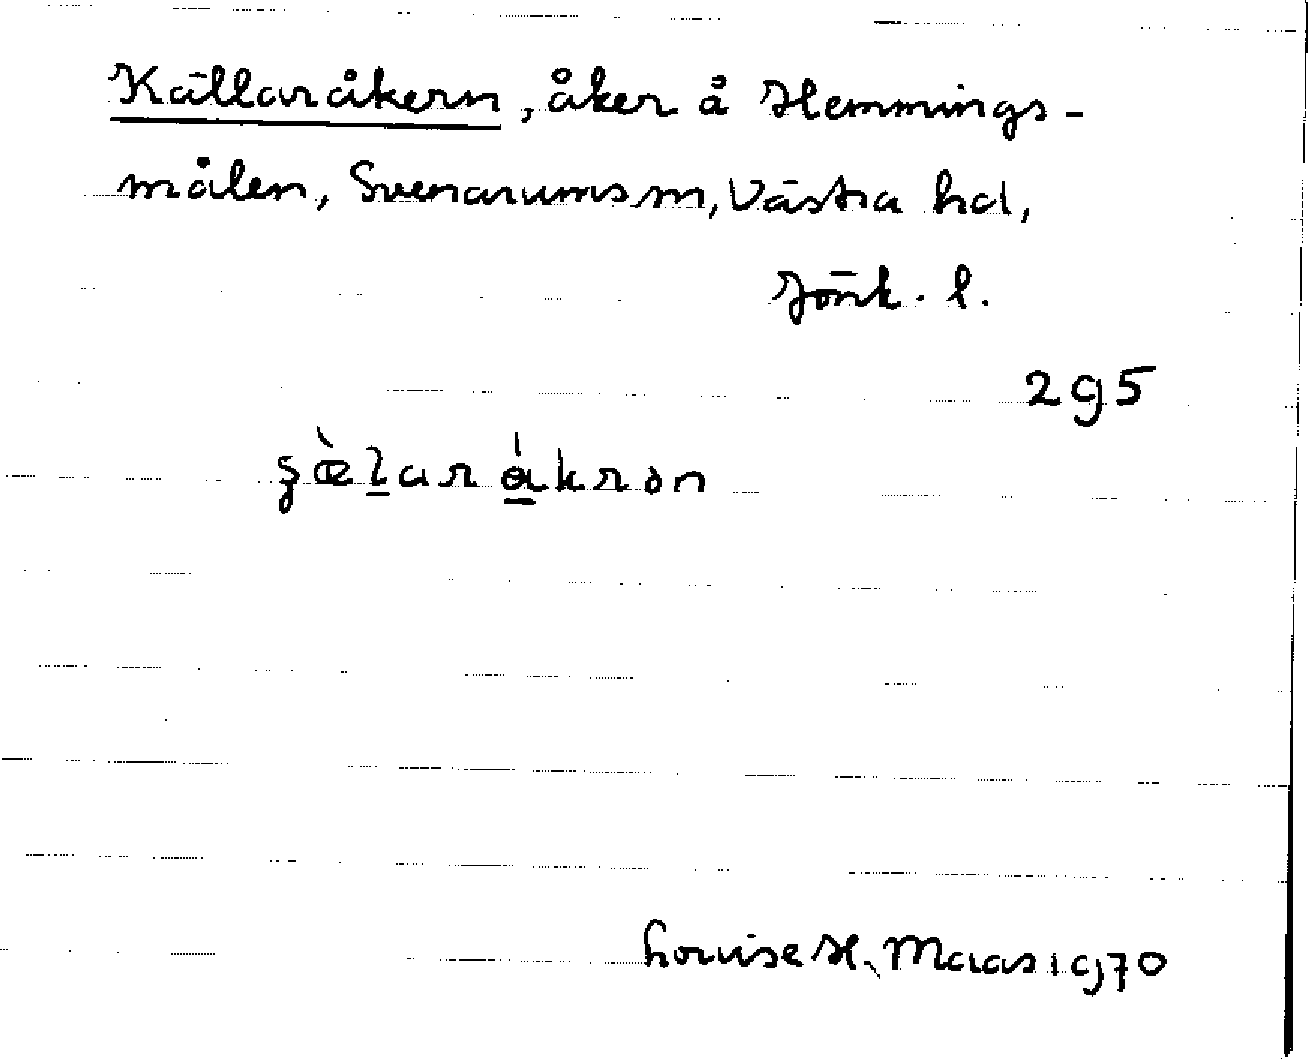 Källaråkern, åker å Hemmings-
målen, Svenarums sn, Västra hd,
Jönk. l.
295
ʂæ̀l̲ar ǻ̲krən
Louise H. Maas 1970